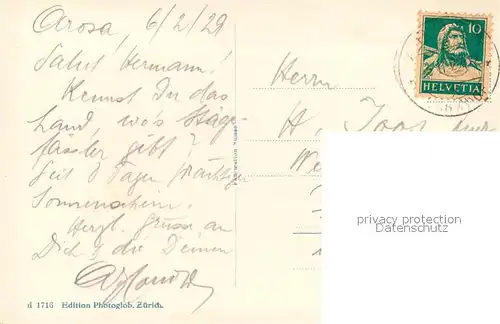 Arosa, 6/2/29
Salut Hermann!
Kennst Du das
Land, wo's Hage-
fässler gibt?
Seit 8 Tagen prächtiger
Sonnenschein.
Herzl. Grüsse an
Dich & die Deinen
d 1716 Edition Photoglob, Zürich.
10
HELVETIA
Herrn
H. Joos
privacy protection
AKPOOL GmbH